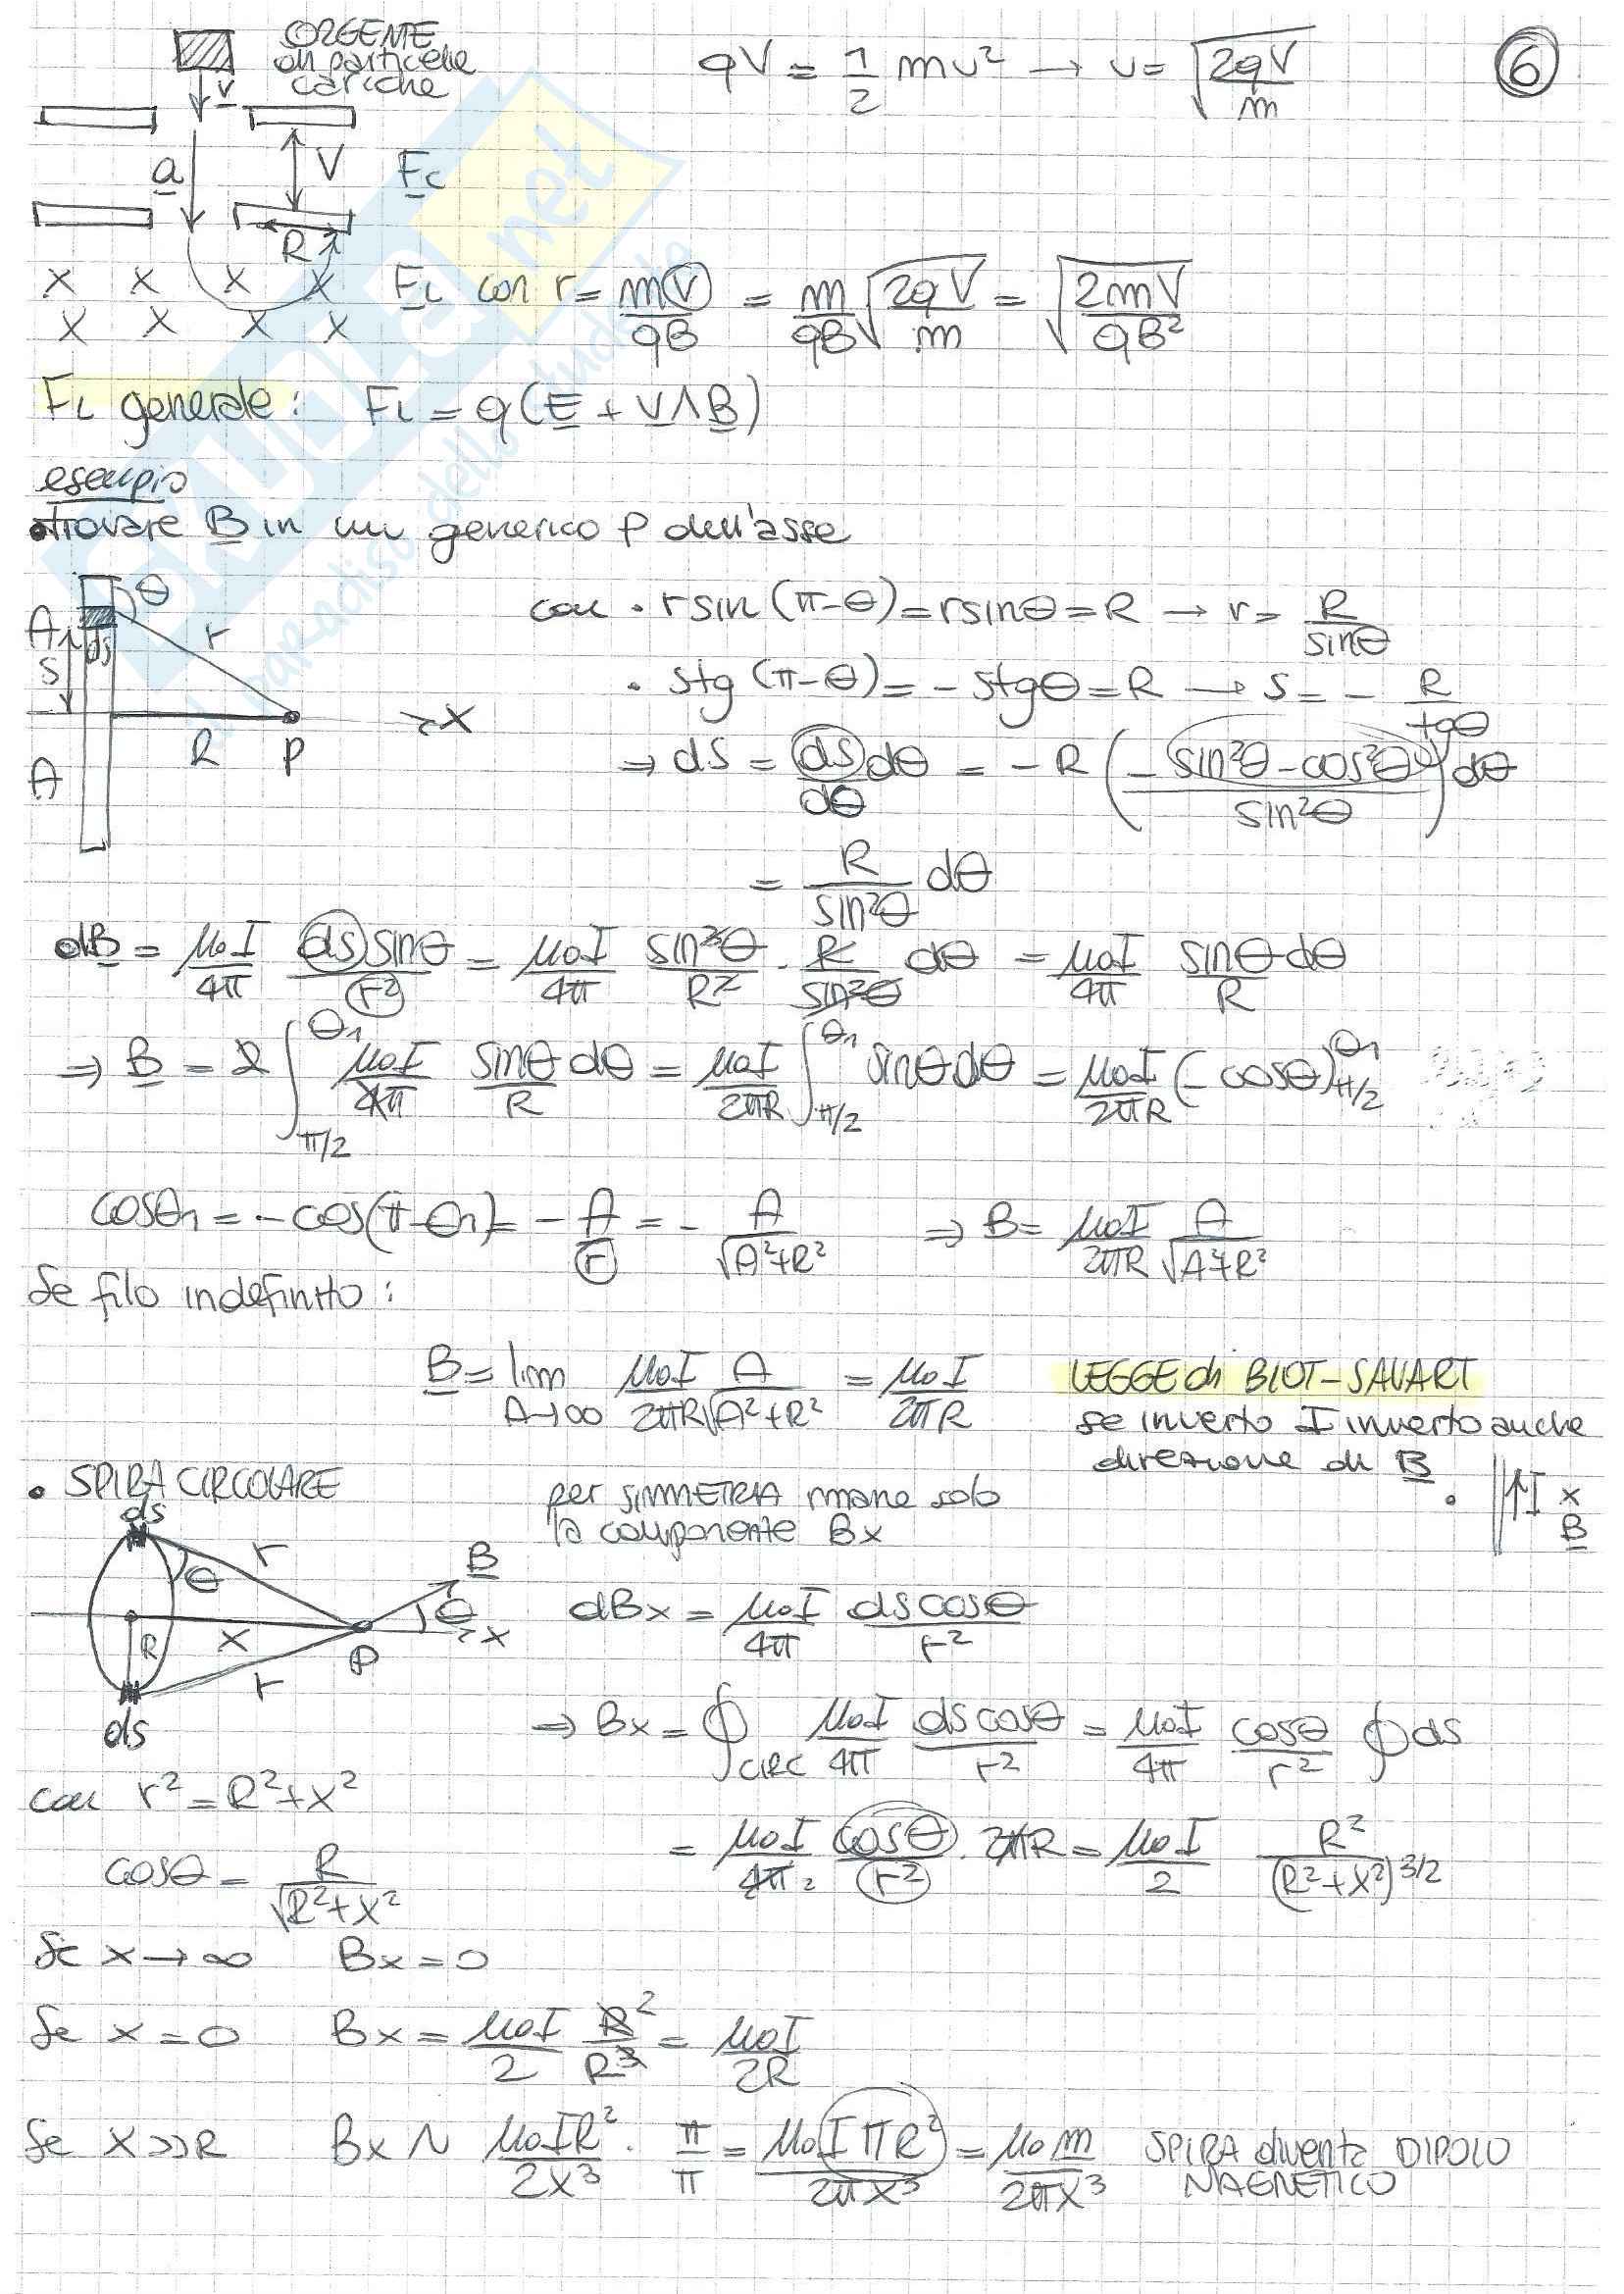 SORGENTE
di particelle
cariche
qV = 1/2 mv² → v = √(2qV/m)
6
v
a
V
Fc
R
x x x x
x x x x
FL con r = mv/qB = m/qB √(2qV/m) = √(2mV/qB²)
FL generale: FL = q(E + v∧B)
esempio
•trovare B in un generico P dell'asse
θ
A
ds
s
r
x
R
P
A
con • r sin(π-θ) = r sinθ = R → r = R/sinθ
• s tg(π-θ) = -s tgθ = R → s = - R/tgθ
⇒ ds = ds/dθ dθ = -R (-sin²θ-cos²θ/sin²θ) dθ
= R/sin²θ dθ
dB = μ0I/4π ds sinθ/r² = μ0I/4π sin³θ/R² · R/sin²θ dθ = μ0I/4π sinθdθ/R
⇒ B = 2 ∫π/2^θ1 μ0I/4π sinθdθ/R = μ0I/2πR ∫π/2^θ1 sinθdθ = μ0I/2πR (-cosθ)π/2^θ1
cosθ1 = -cos(π-θ1) = -A/r = - A/√(A²+R²) ⇒ B = μ0I/2πR A/√(A²+R²)
Se filo indefinito:
B = lim A→∞ μ0I/2πR A/√(A²+R²) = μ0I/2πR
LEGGE di BIOT-SAVART
se inverto I inverto anche
direzione di B
• ↑I x
B
• SPIRA CIRCOLARE
per SIMMETRIA rimane solo
la componente Bx
ds
r
θ
B
θ
x
R
x
P
r
ds
dBx = μ0I/4π ds cosθ/r²
⇒ Bx = ∮CIRC μ0I/4π ds cosθ/r² = μ0I/4π cosθ/r² ∮ds
con r² = R²+x²
= μ0I/4π2 cosθ/r² · 2πR = μ0I/2 R²/(R²+x²)^3/2
cosθ = R/√(R²+x²)
Se x→∞ Bx = 0
Se x = 0 Bx = μ0I/2 R²/R³ = μ0I/2R
Se x>>R Bx ~ μ0IR²/2x³ · π/π = μ0IπR²/2πx³ = μ0m/2πx³ SPIRA diventa DIPOLO
MAGNETICO